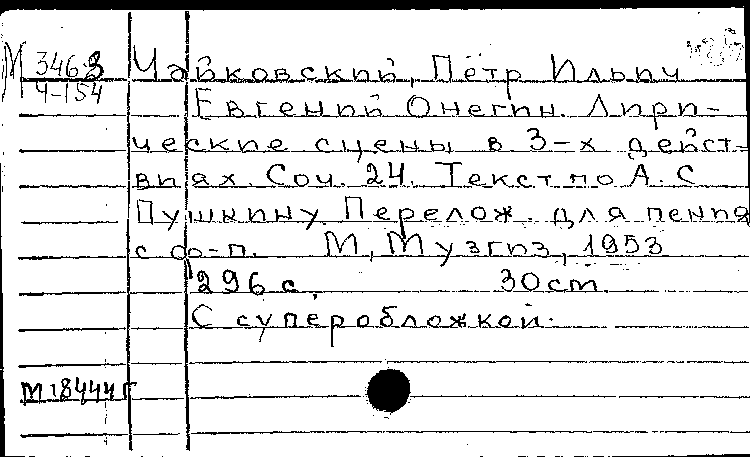 М 3468 Чайковский, Пётр Ильич
Ч-154
Евгений Онегин. Лири-
ческие сцены в 3-х дейст-
виях. Соч. 24. Текст по А. С
Пушкину. Перелож. для пения
с ф-п. М, Музгиз, 1953
296 с. 30 cm.
С суперобложкой.
М 18444 г